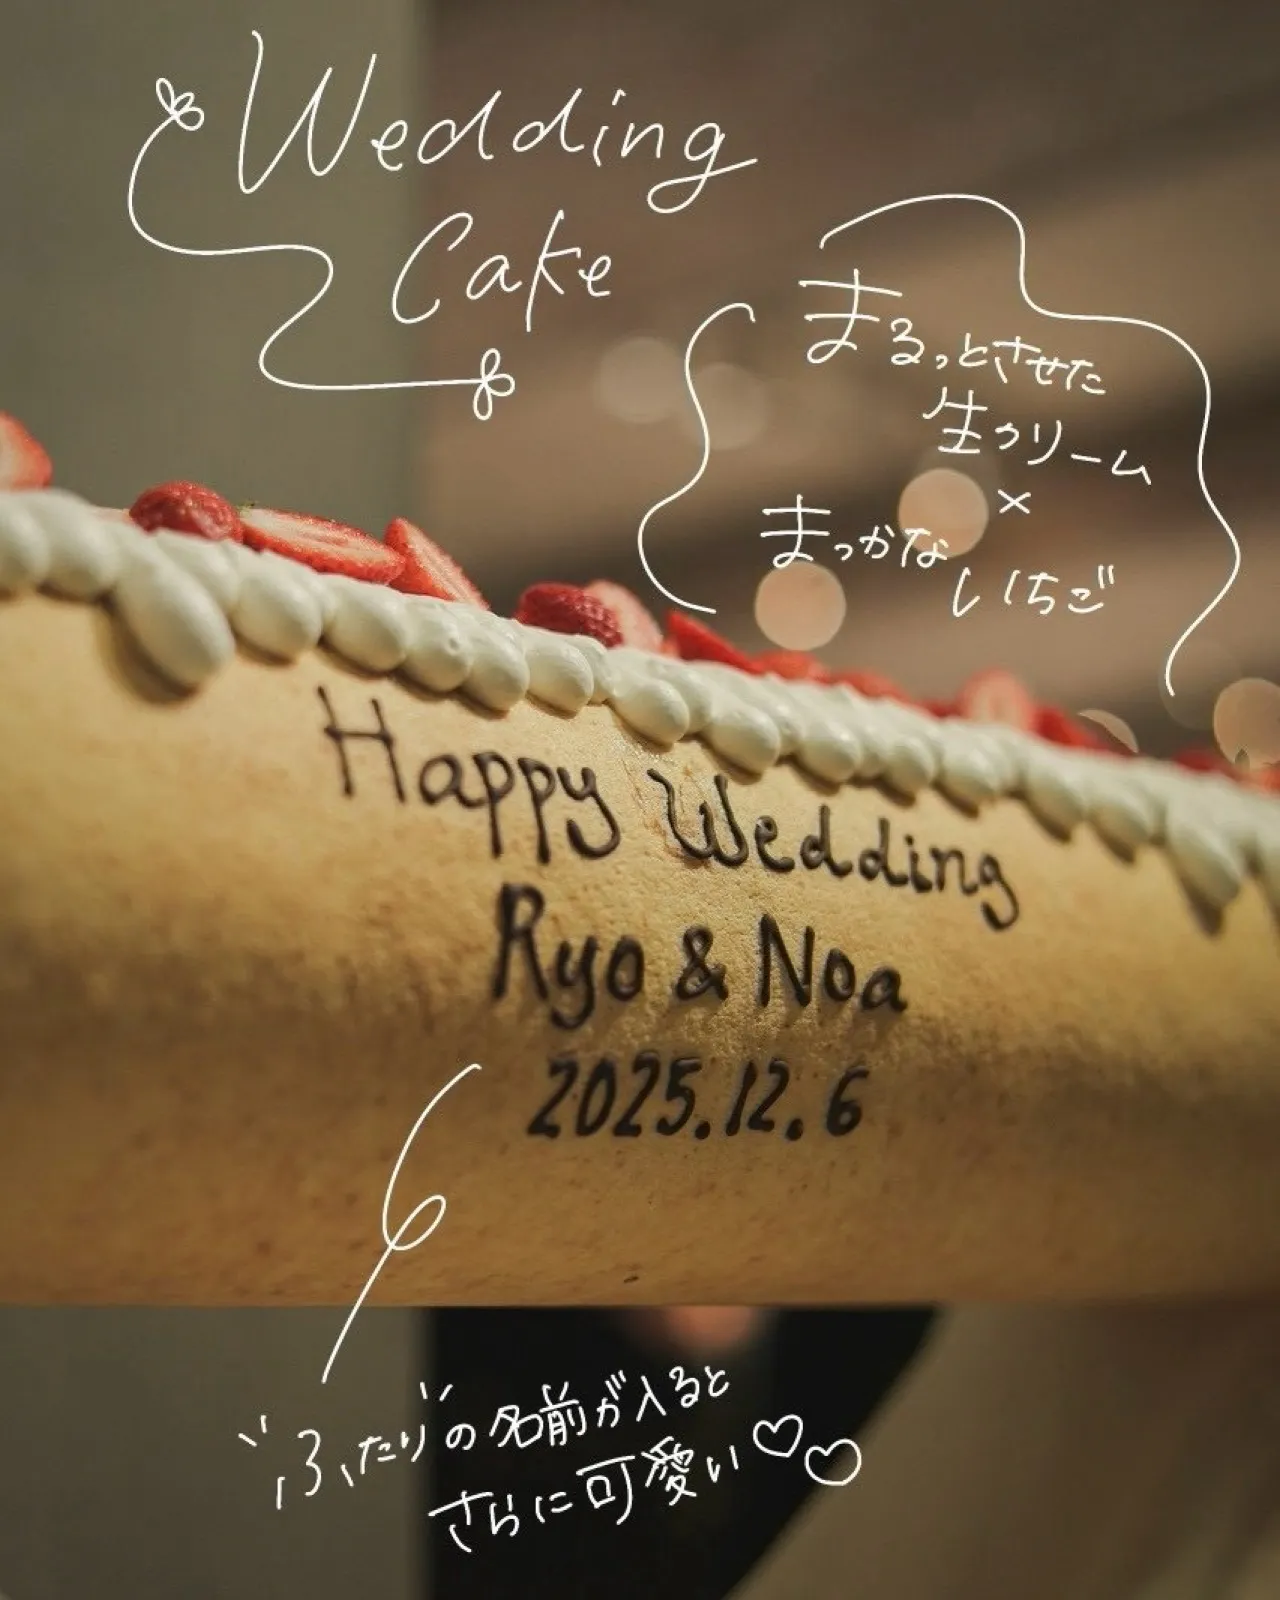 Wedding
Cake
まるっとさせた
生クリーム
×
まっかな
いちご
Happy Wedding
Ryo & Noa
2025.12.6
"ふたり"の名前が入ると
さらに可愛い♡♡